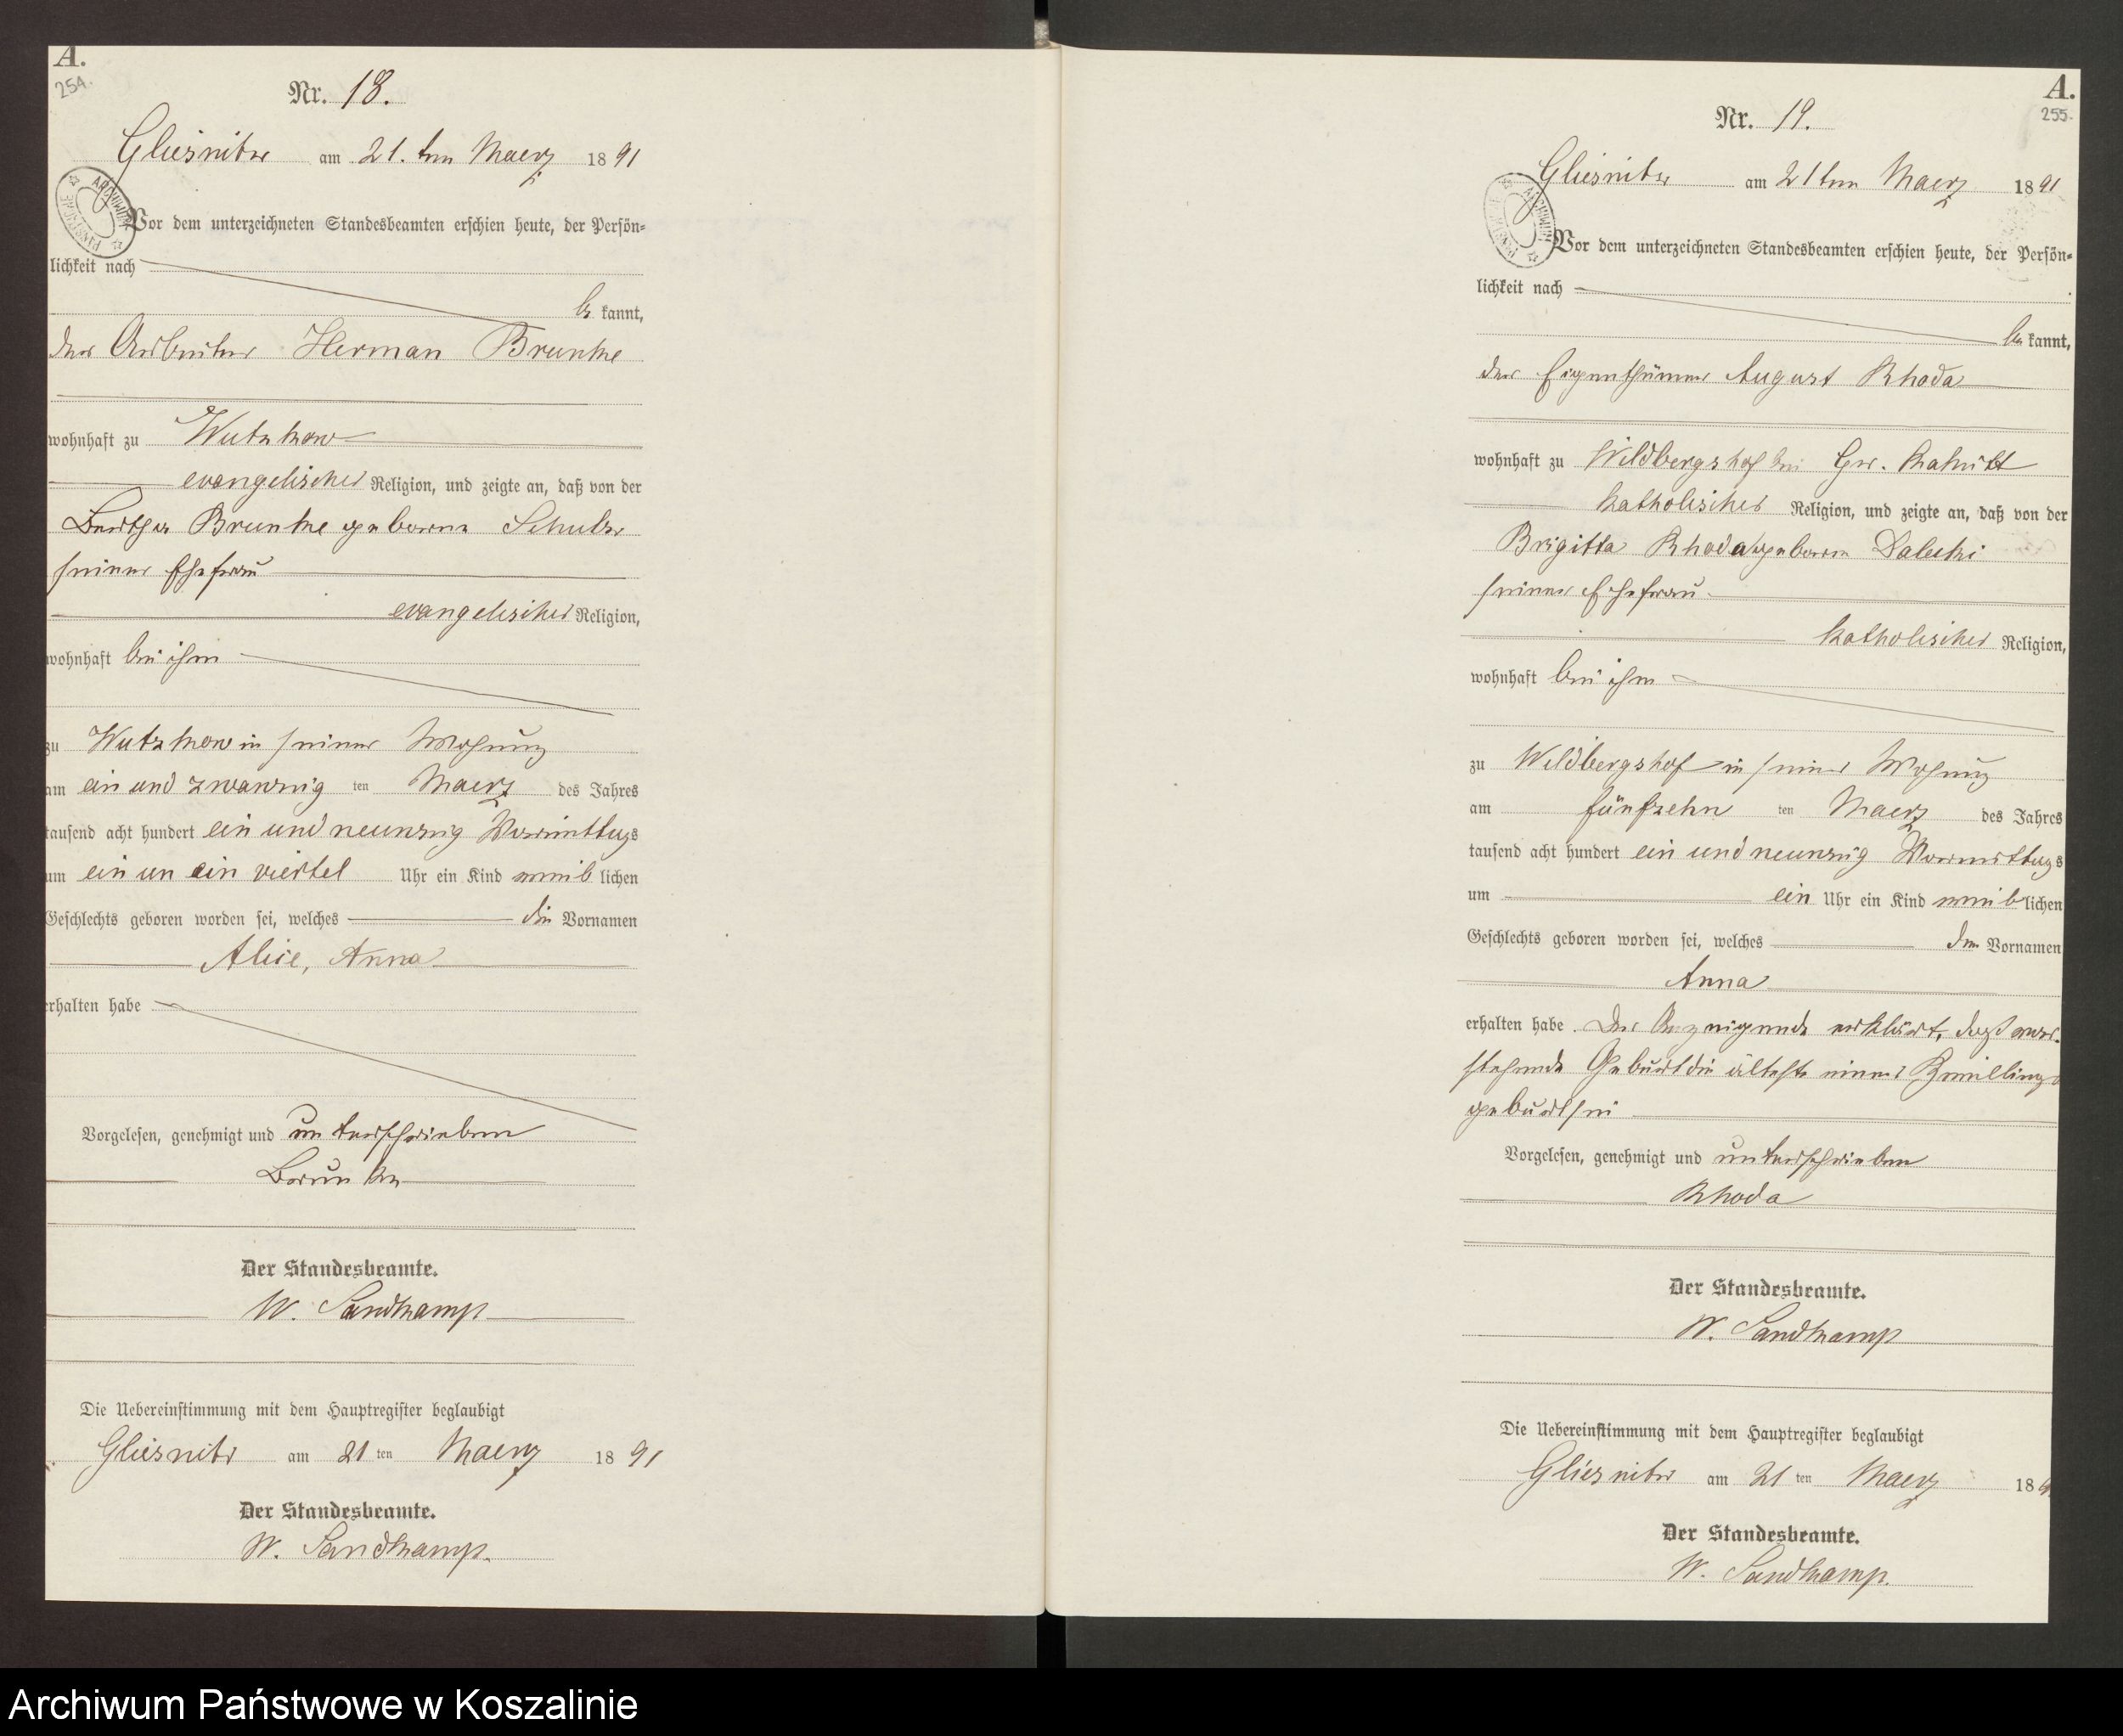 A.
254.
Nr. 18.
Gliesnitz am 21. ten Maerz 1891
Vor dem unterzeichneten Standesbeamten erschien heute, der Persön=
lichkeit nach
be kannt,
der Arbeiter Herman Brunke
wohnhaft zu Wutzkow
evangelischer Religion, und zeigte an, daß von der
Bertha Brunke geborne Schulz
seiner Ehefrau
evangelischer Religion,
wohnhaft bei ihm
zu Wutzkow in seiner Wohnung
am ein und zwanzig ten Maerz des Jahres
tausend acht hundert ein und neunzig Vormittags
um ein un ein viertel Uhr ein Kind weib lichen
Geschlechts geboren worden sei, welches die Vornamen
Alice, Anna
erhalten habe
Vorgelesen, genehmigt und unterschrieben
Brunke
Der Standesbeamte.
W. Sandkamp
Die Uebereinstimmung mit dem Hauptregister beglaubigt
Gliesnitz am 21 ten Maerz 1891
Der Standesbeamte.
W. Sandkamp.
A.
255.
Nr. 19.
Gliesnitz am 21 ten Maerz 1891
Vor dem unterzeichneten Standesbeamten erschien heute, der Persön=
lichkeit nach
be kannt,
der Eigenthümer August Rhoda
wohnhaft zu Wildbergshof bei Gr. Rakitt
katholischer Religion, und zeigte an, daß von der
Brigitta Rhoda geboren Daletzki
seiner Ehefrau
katholischer Religion,
wohnhaft bei ihm
zu Wildbergshof in seiner Wohnung
am fünfzehn ten Maerz des Jahres
tausend acht hundert ein und neunzig Vormittags
um ein Uhr ein Kind weib lichen
Geschlechts geboren worden sei, welches den Vornamen
Anna
erhalten habe. Der Anzeigende erklärt, daß vor-
stehende Geburt die älteste einer Zwillings
geburt sei
Vorgelesen, genehmigt und unterschrieben
Rhoda
Der Standesbeamte.
W. Sandkamp
Die Uebereinstimmung mit dem Hauptregister beglaubigt
Gliesnitz am 21 ten Maerz 189
Der Standesbeamte.
W. Sandkamp.
Archiwum Państwowe w Koszalinie